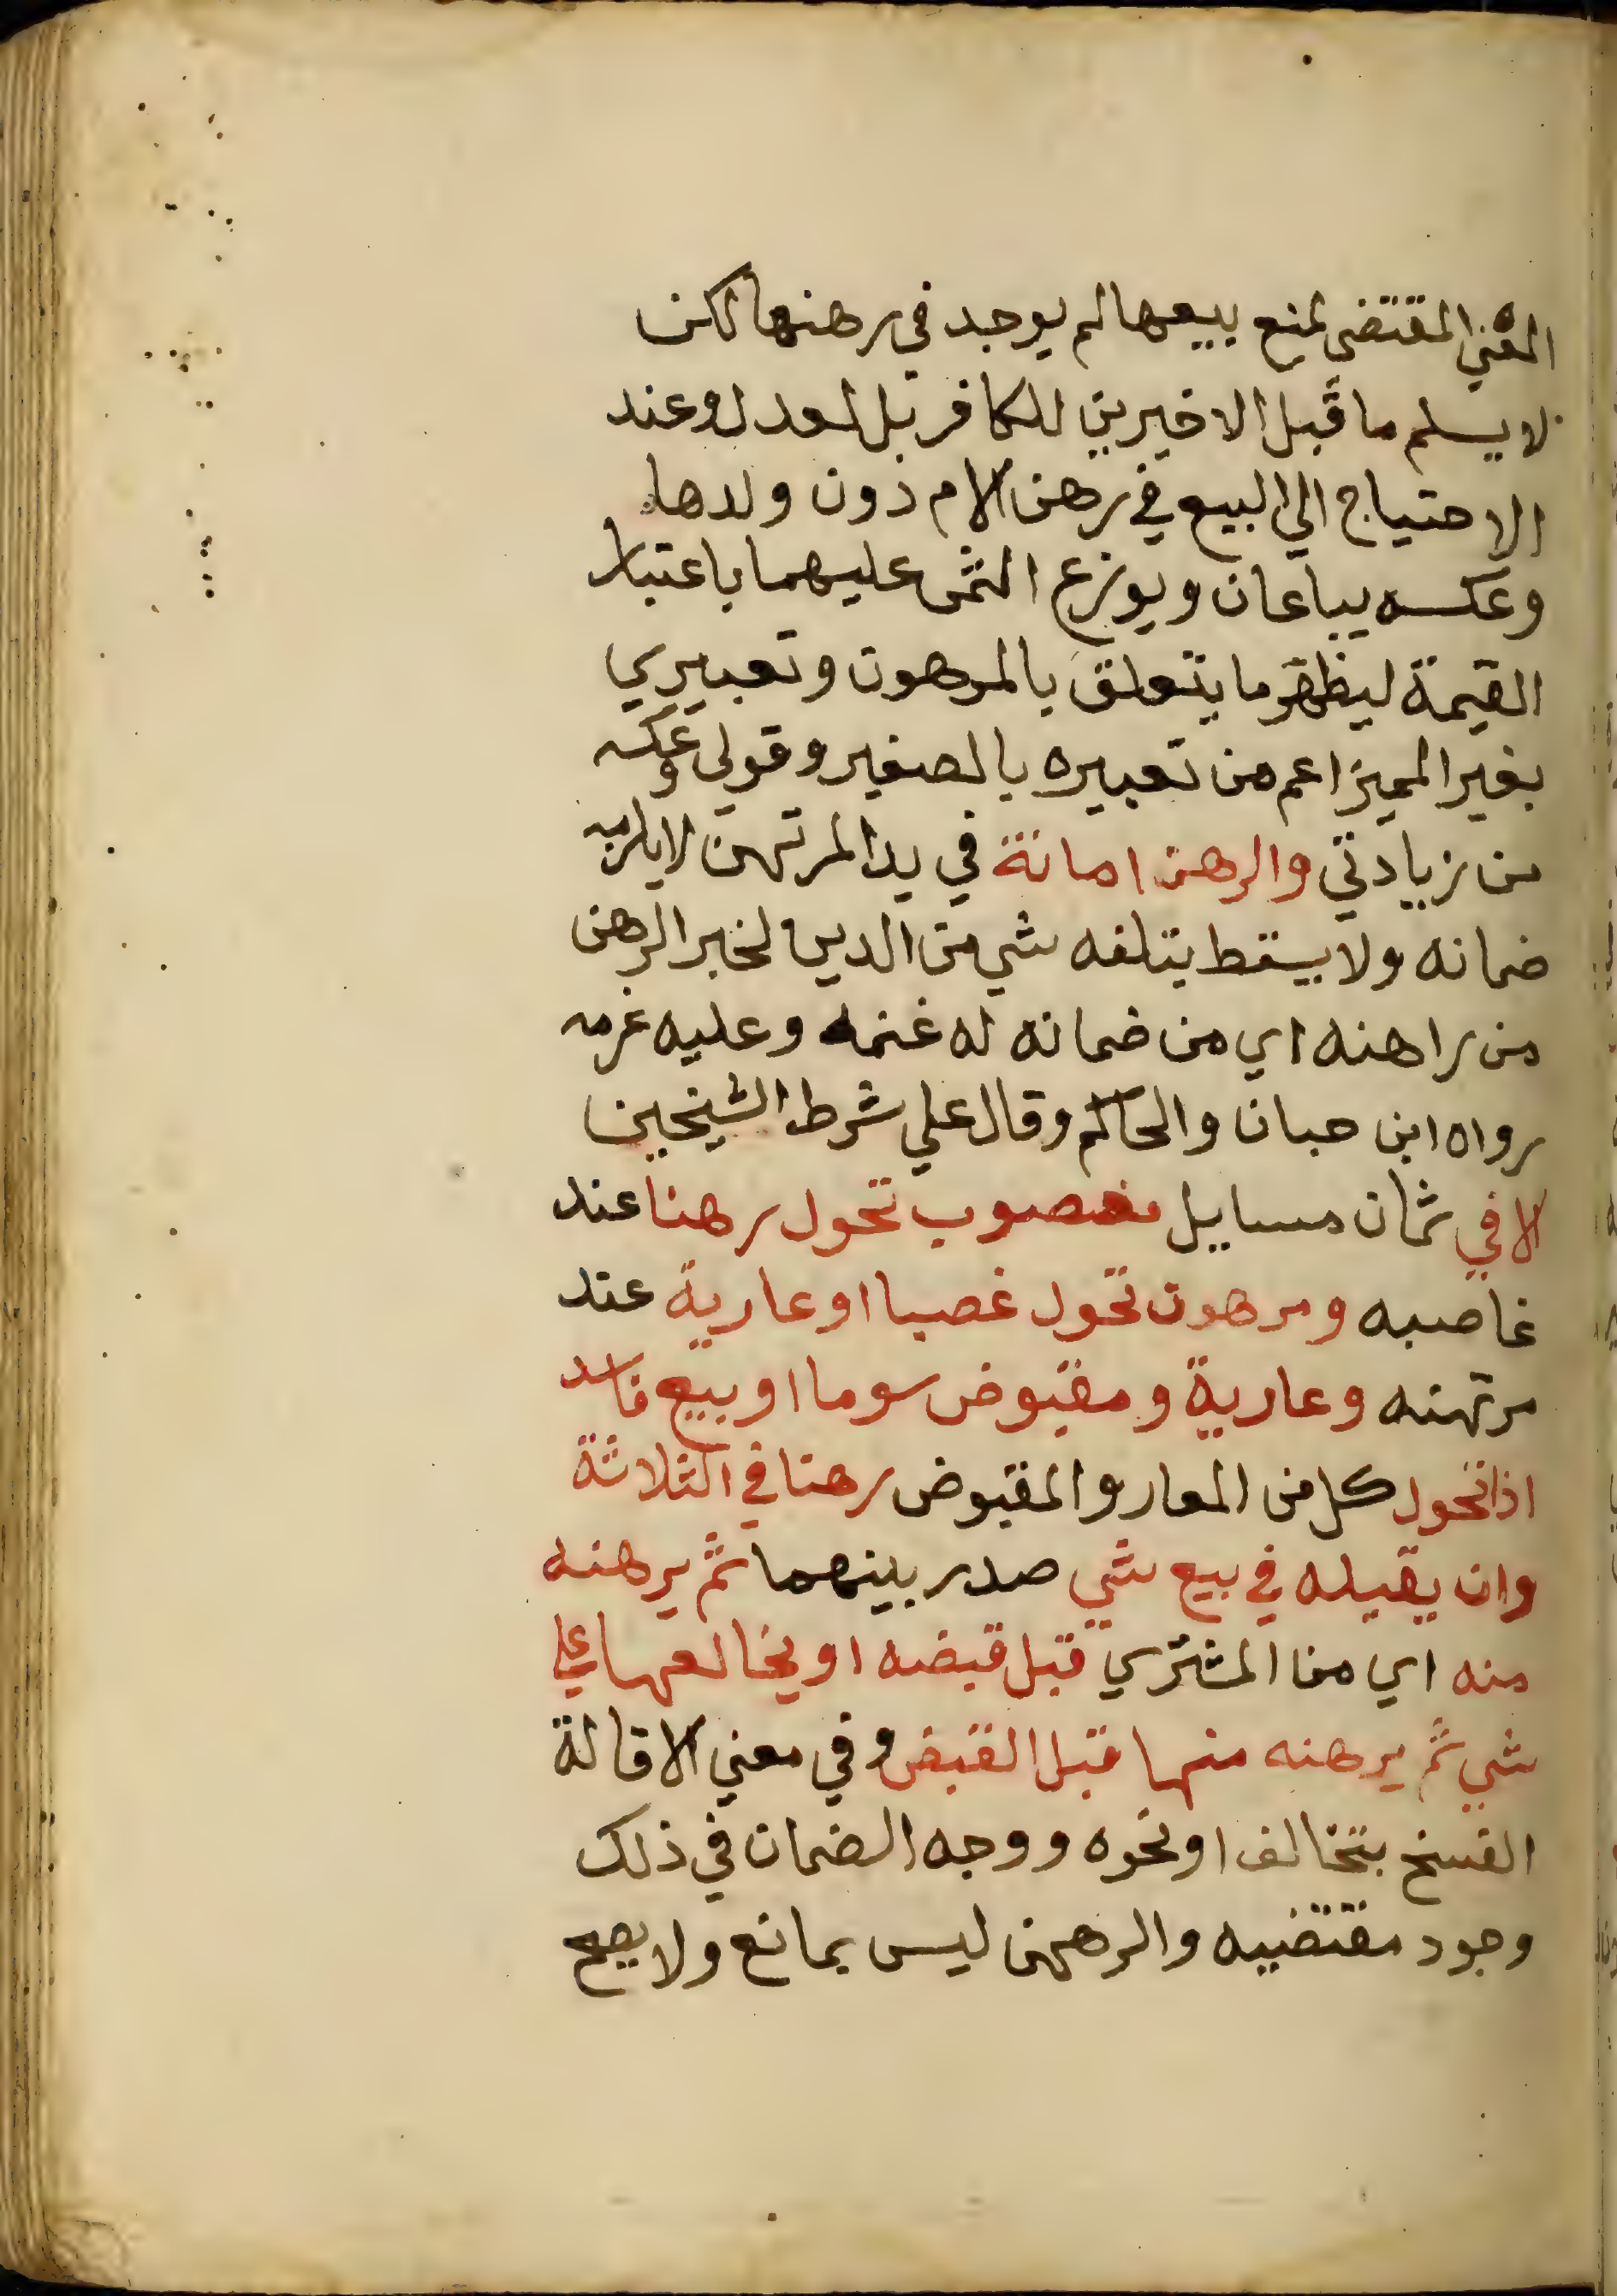 المعني المقتضى لمنع بيعها لم يوجد في رهنها لكن
لا يسلم ما قبل الاخيرين للكافر بل لعدل وعند
الاحتياج الي البيع في رهن الام دون ولدها
وعكسه يباعان ويوزع الثمن عليهما باعتبار
القيمة ليظهر ما يتعلق بالمرهون وتعبيري
بغير المميز اعم من تعبيره بالصغير وقولي وعكسه
من زيادتي والرهن امانة في يد المرتهن لا يلزمه
ضمانه ولا يسقط بتلفه شي من الدين لخبر الرهن
من راهنه اي من ضمانه له غنمه وعليه غرمه
رواه ابن حبان والحاكم وقال علي شرط الشيخين
الا في ثمان مسايل مغصوب تحول رهنا عند
غاصبه ومرهون تحول غصبا او عارية عند
مرتهنه وعارية ومقبوض سوما او بيع فاسد
اذا تحول كل من المعار والمقبوض رهنا في الثلاثة
وان يقيله في بيع شي صدر بينهما ثم يرهنه
منه اي من المشتري قبل قبضه او يخالعها علي
شي ثم يرهنه منها قبل القبض وفي معني الاقالة
الفسخ بتخالف او نحوه ووجه الضمان في ذلك
وجود مقتضيه والرهن ليس بمانع ولا يصح